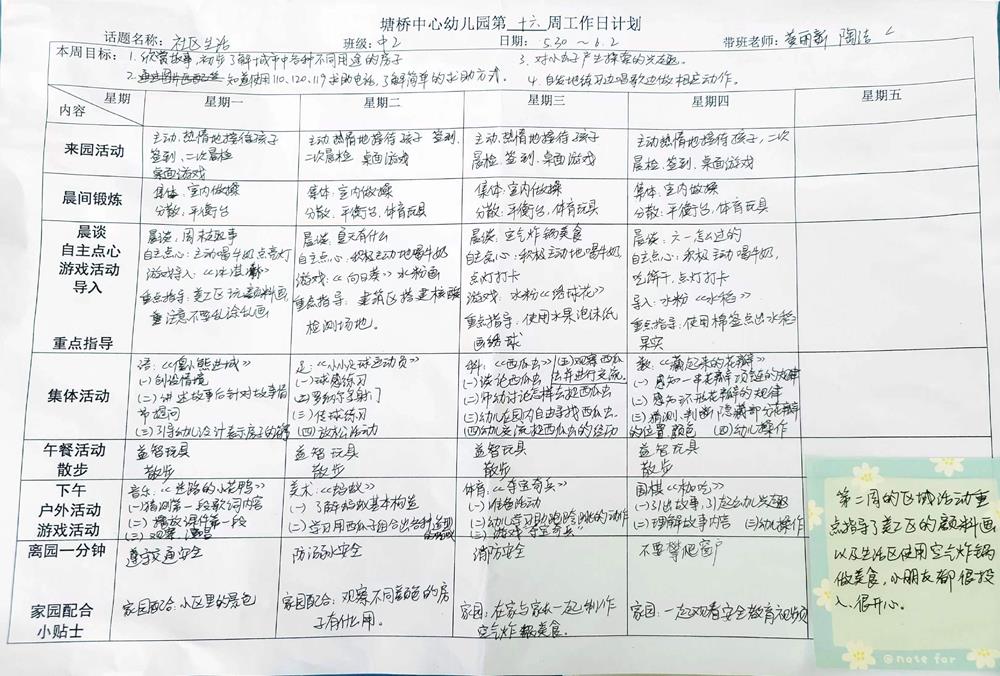 塘桥中心幼儿园第 十六 周工作日计划
话题名称：社区生活 班级：中2 日期：5.30～6.2 带班老师：黄丽新 陶洁
本周目标：1.欣赏故事，初步了解城市中各种不同用途的房子 3.对小虫子产生探索的兴趣。
2. 知道使用110、120、119求助电话，了解简单的求助方式。 4.自台地练习边唱歌边做相应动作。
内容 星期 星期一 星期二 星期三 星期四 星期五
来园活动
主动、热情地接待孩子
签到、二次晨检
桌面游戏
主动热情地接待孩子 签到、
二次晨检 桌面游戏
主动、热情地接待孩子
晨检、签到、桌面游戏
主动热情地接待孩子，二次
晨检、签到、桌面游戏
晨间锻炼
集体：室内做操
分散：平衡台
集体：室内做操
分散：平衡台、体育玩具
集体：室内做操
分散：平衡台、体育玩具
集体：室内做操
分散：平衡台、体育玩具
晨谈
自主点心
游戏活动
导入
重点指导
晨谈：周末故事
自主点心：主动喝牛奶点亮灯
游戏导入：《冰淇淋》
重点指导：美工区玩颜料画，
要注意不要乱涂乱画
晨谈：夏天有什么
自主点心：积极主动地喝牛奶
游戏：《向日葵》水粉画
重点指导：建筑区搭建核酸
检测场地。
晨谈：空气炸锅美食
自主点心：积极主动地喝牛奶，
点灯打卡
游戏：水粉《绣球花》
重点指导：使用水果泡沫纸
画绣球
晨谈：六一怎么过的
自主点心：积极主动喝牛奶，
吃饼干，点灯打卡
导入：水粉《水稻》
重点指导：使用棉签点出水稻
果实
集体活动
语：《傻小熊进城》
(一)创设情境
(二)讲述故事后针对故事情
节提问
(三)引导幼儿设计表示房子的
足：《小小足球运动员》
(一)球感练习
(三)传球练习
(四)放松活动
科：《西瓜虫》(五)观察西瓜
(一)谈论西瓜虫 虫并进行交流。
(二)师幼讨论怎样去捉西瓜虫
(三)幼儿在园内自由寻找西瓜虫。
(四)幼儿交流捉西瓜虫的经历
数：《藏起来的花瓣》
(一)感知一串花瓣项链的规律
(二)感知环形花瓣的规律
(三)猜测、判断隐藏部分花瓣
的位置、颜色 (四)幼儿操作
午餐活动
散步
益智玩具
散步
益智玩具
散步
益智玩具
散步
益智玩具
散步
下午
户外活动
游戏活动
音乐：《丝路的小花鸭》
(一)猜测第一段歌词内容
(二)播放课件第一段
(三)观察、
美术：《蚂蚁》
(一)了解蚂蚁基本构造
(二)学习用瓜子组合出各种
体育：《夺宝奇兵》
(一)准备活动
(二)幼儿学习助跑跨跳的动作
(三)游戏“夺宝奇兵”
围棋《松吃》
(一)引出故事，引起幼儿兴趣
(二)理解故事内容 (三)幼儿操作
离园一分钟
遵守交通安全
防溺水安全
消防安全
不要攀爬窗户
家园配合
小贴士
家园配合：小区里的景色
家园配合：观察不同颜色的房
子有什么用。
家园：在家与家长一起制作
空气炸锅美食。
家园：一起观看安全教育视频
第二周的区域活动重
点指导了美工区的颜料画
以及生活区使用空气炸锅
做美食，小朋友都很投
入、很开心。
@note for